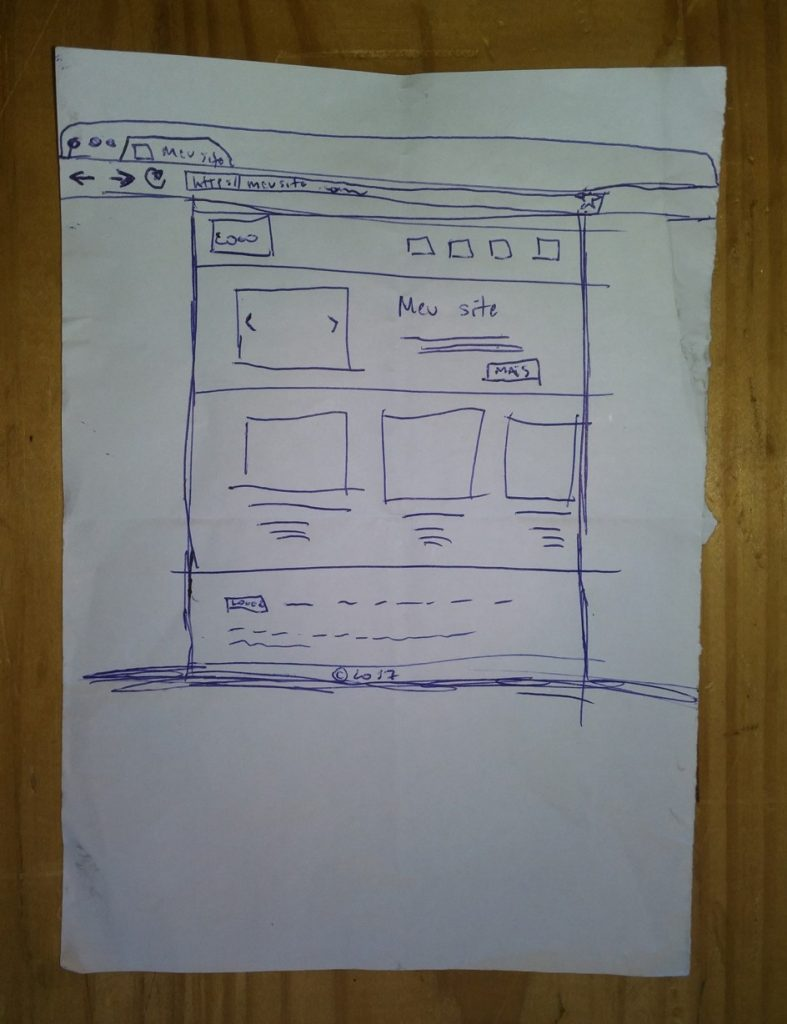 Meu site
https| meusite
LOGO
Meu site
MAIS
© 2017